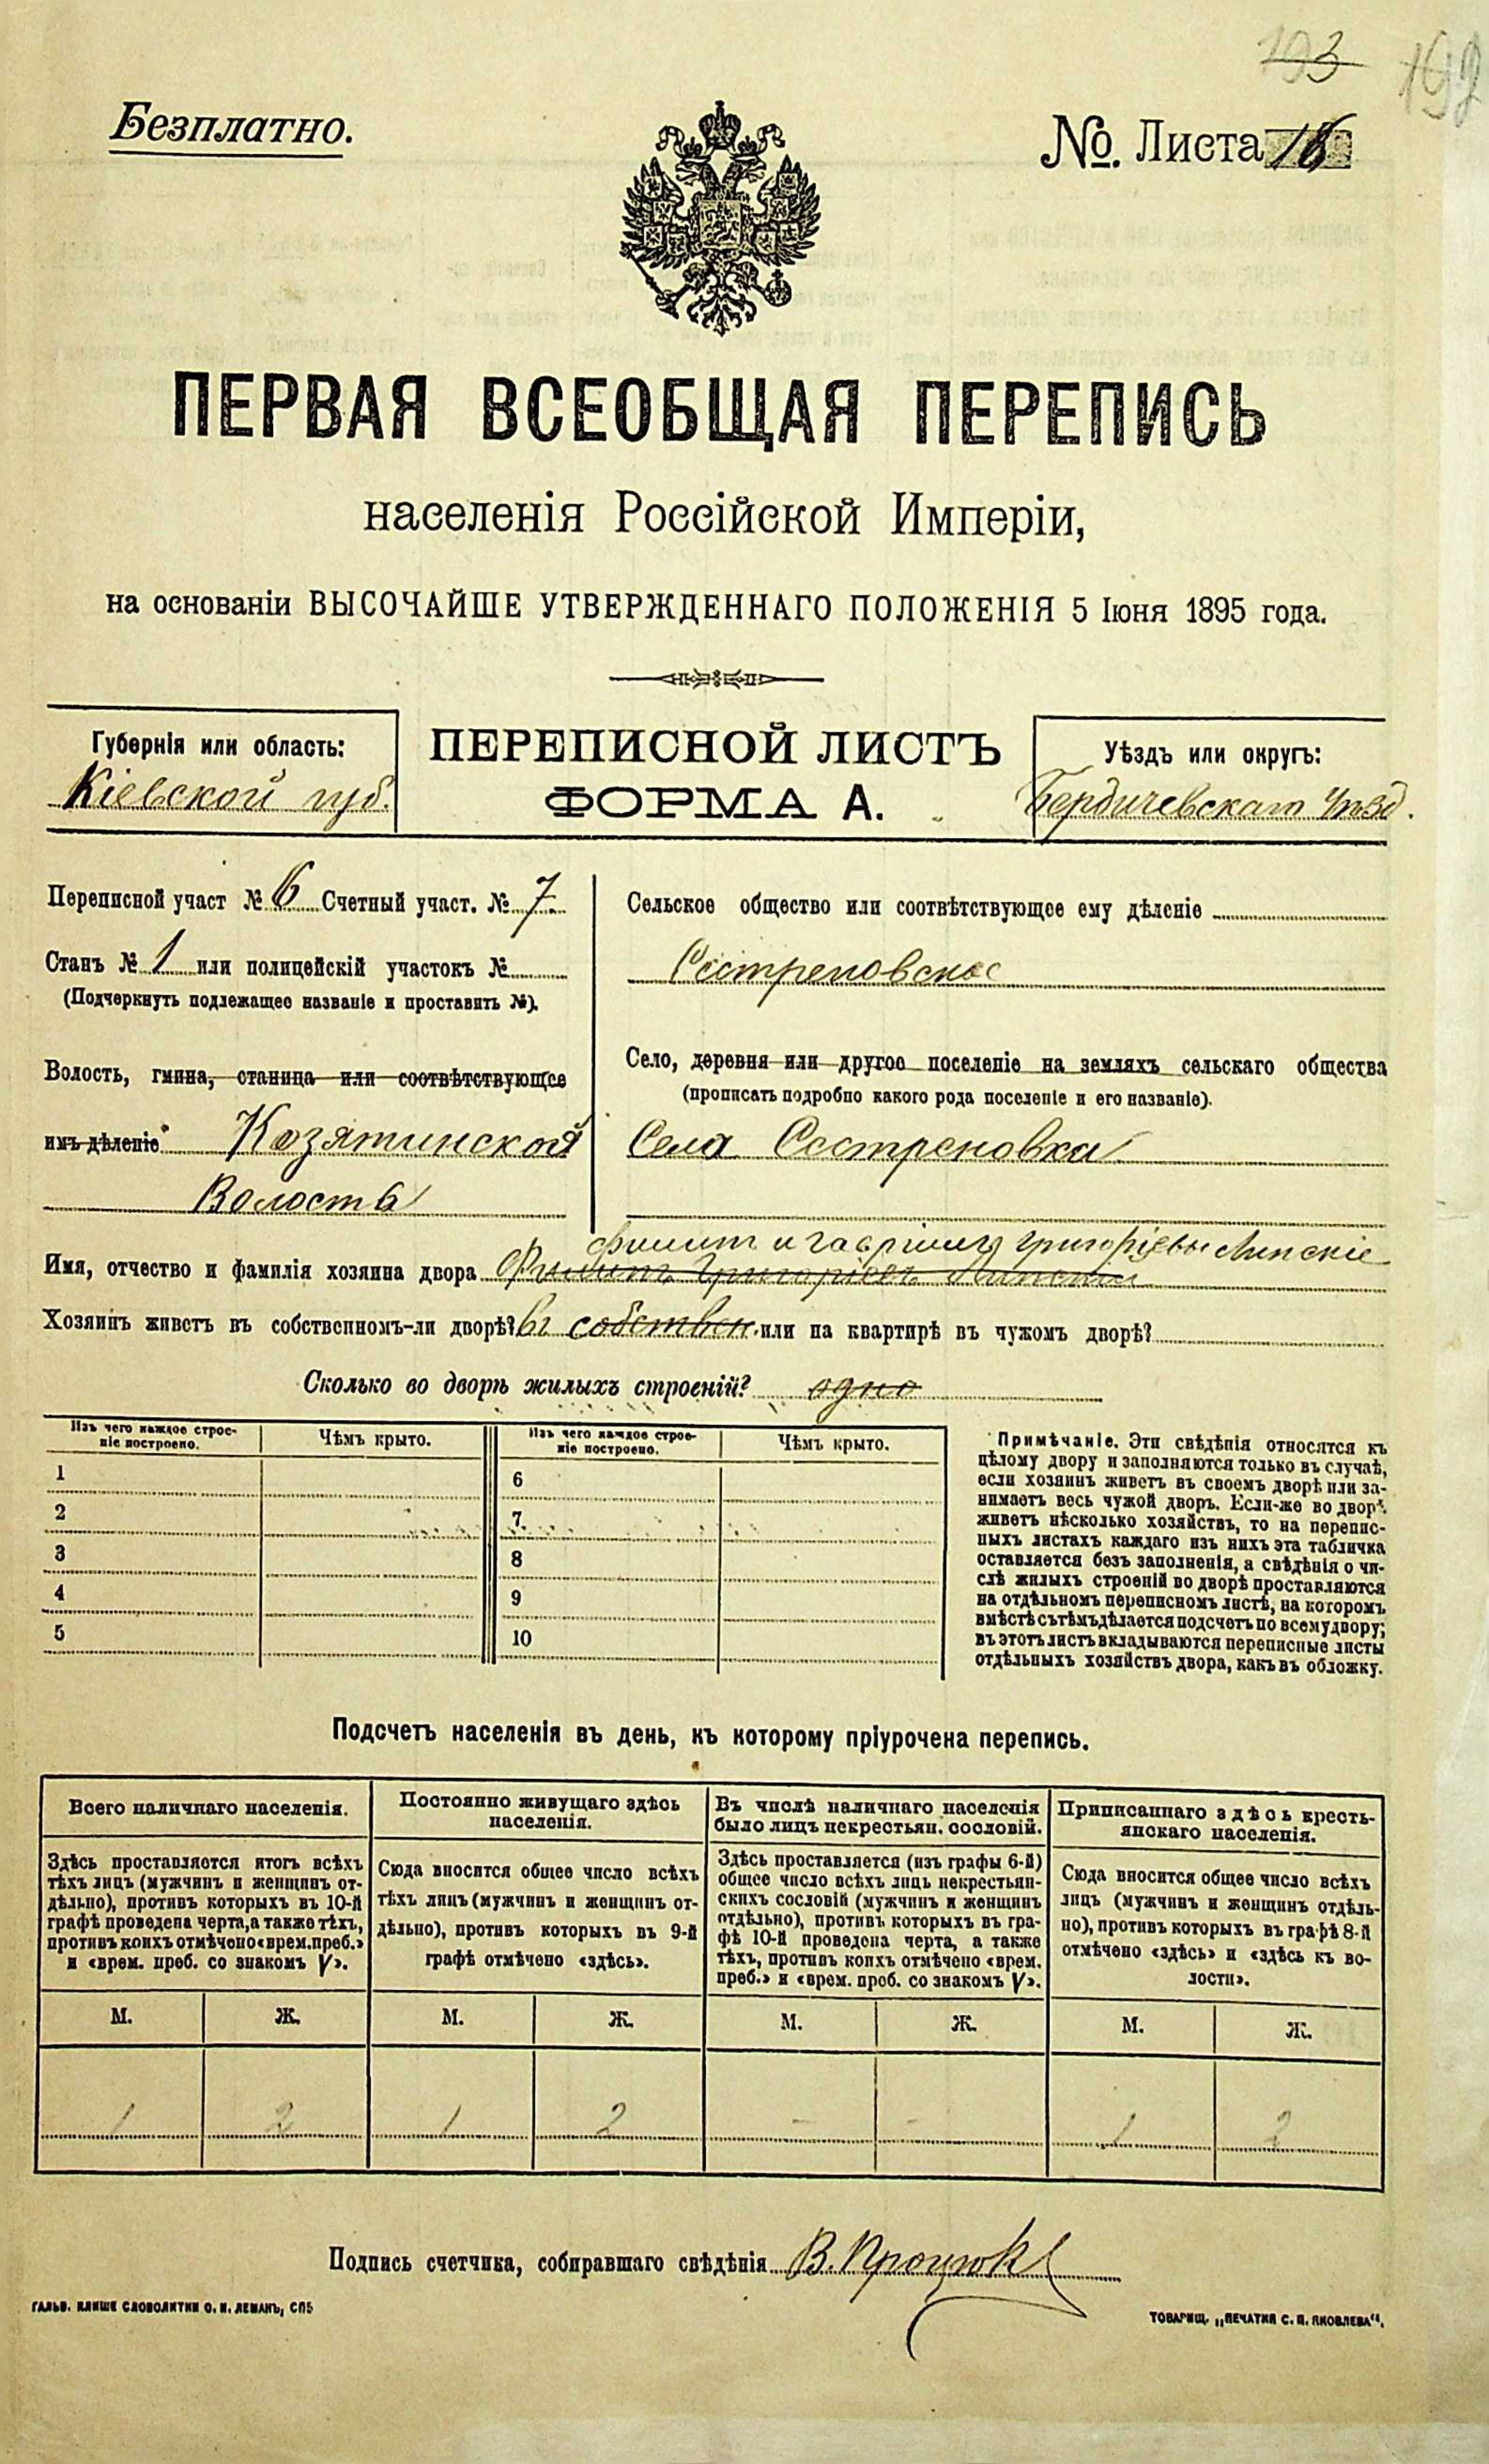 193 192
Безплатно.
№ Листа 16
ПЕРВАЯ ВСЕОБЩАЯ ПЕРЕПИСЬ
населенія Россійской Имперіи,
на основаніи ВЫСОЧАЙШЕ УТВЕРЖДЕННАГО ПОЛОЖЕНІЯ 5 Іюня 1895 года.
Губернія или область:
Кіевской губ.
ПЕРЕПИСНОЙ ЛИСТЪ
ФОРМА А.
Уѣздъ или округъ:
Бердичевскаго уѣзд.
Переписной участ № 6 Счетный участ. № 7
Станъ № 1 или полицейскій участокъ №
(Подчеркнуть подлежащее названіе и проставить №).
Волость, гмина, станица или соотвѣтствующее
имъ дѣленіе Козятинской
Волости
Сельское общество или соотвѣтствующее ему дѣленіе
Сестреновское
Село, деревня или другое поселеніе на земляхъ сельскаго общества
(прописать подробно какого рода поселеніе и его названіе).
Села Сестреновка
Филип и Гавріил Григоріевы Липскіе
Имя, отчество и фамилія хозяина двора Филипъ Григоріевъ Липскій
Хозяинъ живетъ въ собственномъ-ли дворѣ? въ собствен. или на квартирѣ въ чужомъ дворѣ?
Сколько во дворѣ жилыхъ строеній? одно
Изъ чего каждое строе-
ніе построено.
Чѣмъ крыто.
Изъ чего каждое строе-
ніе построено.
Чѣмъ крыто.
1
2
3
4
5
6
7
8
9
10
Примѣчаніе. Эти свѣдѣнія относятся къ
цѣлому двору и заполняются только въ случаѣ,
если хозяинъ живетъ въ своемъ дворѣ или за-
нимаетъ весь чужой дворъ. Если-же во дворѣ
живетъ нѣсколько хозяйствъ, то на перепис-
ныхъ листахъ каждаго изъ нихъ эта табличка
оставляется безъ заполненія, а свѣдѣнія о чи-
слѣ жилыхъ строеній во дворѣ проставляются
на отдѣльномъ переписномъ листѣ, на которомъ
вмѣстѣ съ тѣмъ дѣлается подсчетъ по всему двору;
въ этотъ листъ вкладываются переписные листы
отдѣльныхъ хозяйствъ двора, какъ въ обложку.
Подсчетъ населенія въ день, къ которому пріурочена перепись.
Всего наличнаго населенія.
Здѣсь проставляется итогъ всѣхъ
тѣхъ лицъ (мужчинъ и женщинъ от-
дѣльно), противъ которыхъ въ 10-й
графѣ проведена черта, а также тѣхъ,
противъ коихъ отмѣчено «врем. преб.»
и «врем. преб. со знакомъ V».
Постоянно живущаго здѣсь
населенія.
Сюда вносится общее число всѣхъ
тѣхъ лицъ (мужчинъ и женщинъ от-
дѣльно), противъ которыхъ въ 9-й
графѣ отмѣчено «здѣсь».
Въ числѣ наличнаго населенія
было лицъ некрестьян. сословій.
Здѣсь проставляется (изъ графы 6-й)
общее число всѣхъ лицъ некрестьян-
скихъ сословій (мужчинъ и женщинъ
отдѣльно), противъ которыхъ въ гра-
фѣ 10-й проведена черта, а также
тѣхъ, противъ коихъ отмѣчено «врем.
преб.» и «врем. преб. со знакомъ V».
Приписаннаго здѣсь кресть-
янскаго населенія.
Сюда вносится общее число всѣхъ
лицъ (мужчинъ и женщинъ отдѣль-
но), противъ которыхъ въ графѣ 8-й
отмѣчено «здѣсь» и «здѣсь къ во-
лости».
М. Ж. М. Ж. М. Ж. М. Ж.
1 2 1 2 - - 1 2
Подпись счетчика, собиравшаго свѣдѣнія В. Процюк
ГАЛЬВ. КЛИШЕ СЛОВОЛИТНИ О. И. ЛЕМАНЪ, СПБ
ТОВАРИЩ. „ПЕЧАТНЯ С. П. ЯКОВЛЕВА“.